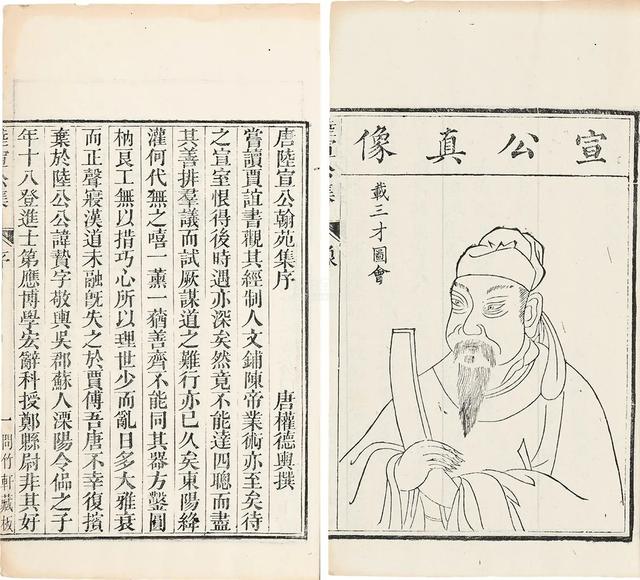 宣公真像
載三才圖會
陸宣公集
像
唐陸宣公翰苑集序
唐權德輿撰
嘗讀賈誼書觀其經制人文鋪陳帝業術亦至矣待
之宣室恨得後時遇亦深矣然竟不能達四聰而盡
其善排羣議而試厥謀道之難行亦已久矣東陽絳
灌何代無之嘻一薰一蕕善齊不能同其器方鑿圓
枘良工無以措巧心所以理世少而亂日多大雅衰
而正聲寢漢道未融旣失之於賈傅吾唐不幸復擯
棄於陸公公諱贄字敬輿吳郡蘇人溧陽令偘之子
年十八登進士第應博學宏辭科授鄭縣尉非其好
陸宣公集
序
一
問竹軒藏板